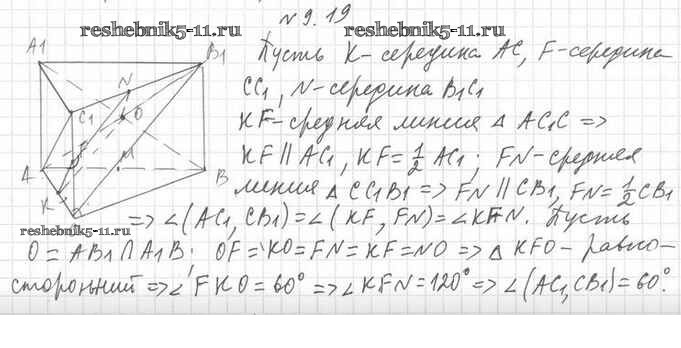 N 9.19
reshebnik5-11.ru
reshebnik5-11.ru
A1
B1
N
C1
O
A
M
B
K
Пусть K - середина AC, F - середина
CC1, N - середина B1C1
KF - средняя линия Δ AC1C =>
KF || AC1, KF = 1/2 AC1; FN - средняя
линия Δ CC1B1 => FN || CB1, FN = 1/2 CB1
=> ∠(AC1, CB1) = ∠(KF, FN) = ∠KFN. Пусть
O = AB1 ∩ A1B. OF = KO = FN = KF = NO => Δ KFO - равно-
сторонний => ∠FKO = 60° => ∠KFN = 120° => ∠(AC1, CB1) = 60°.
reshebnik5-11.ru